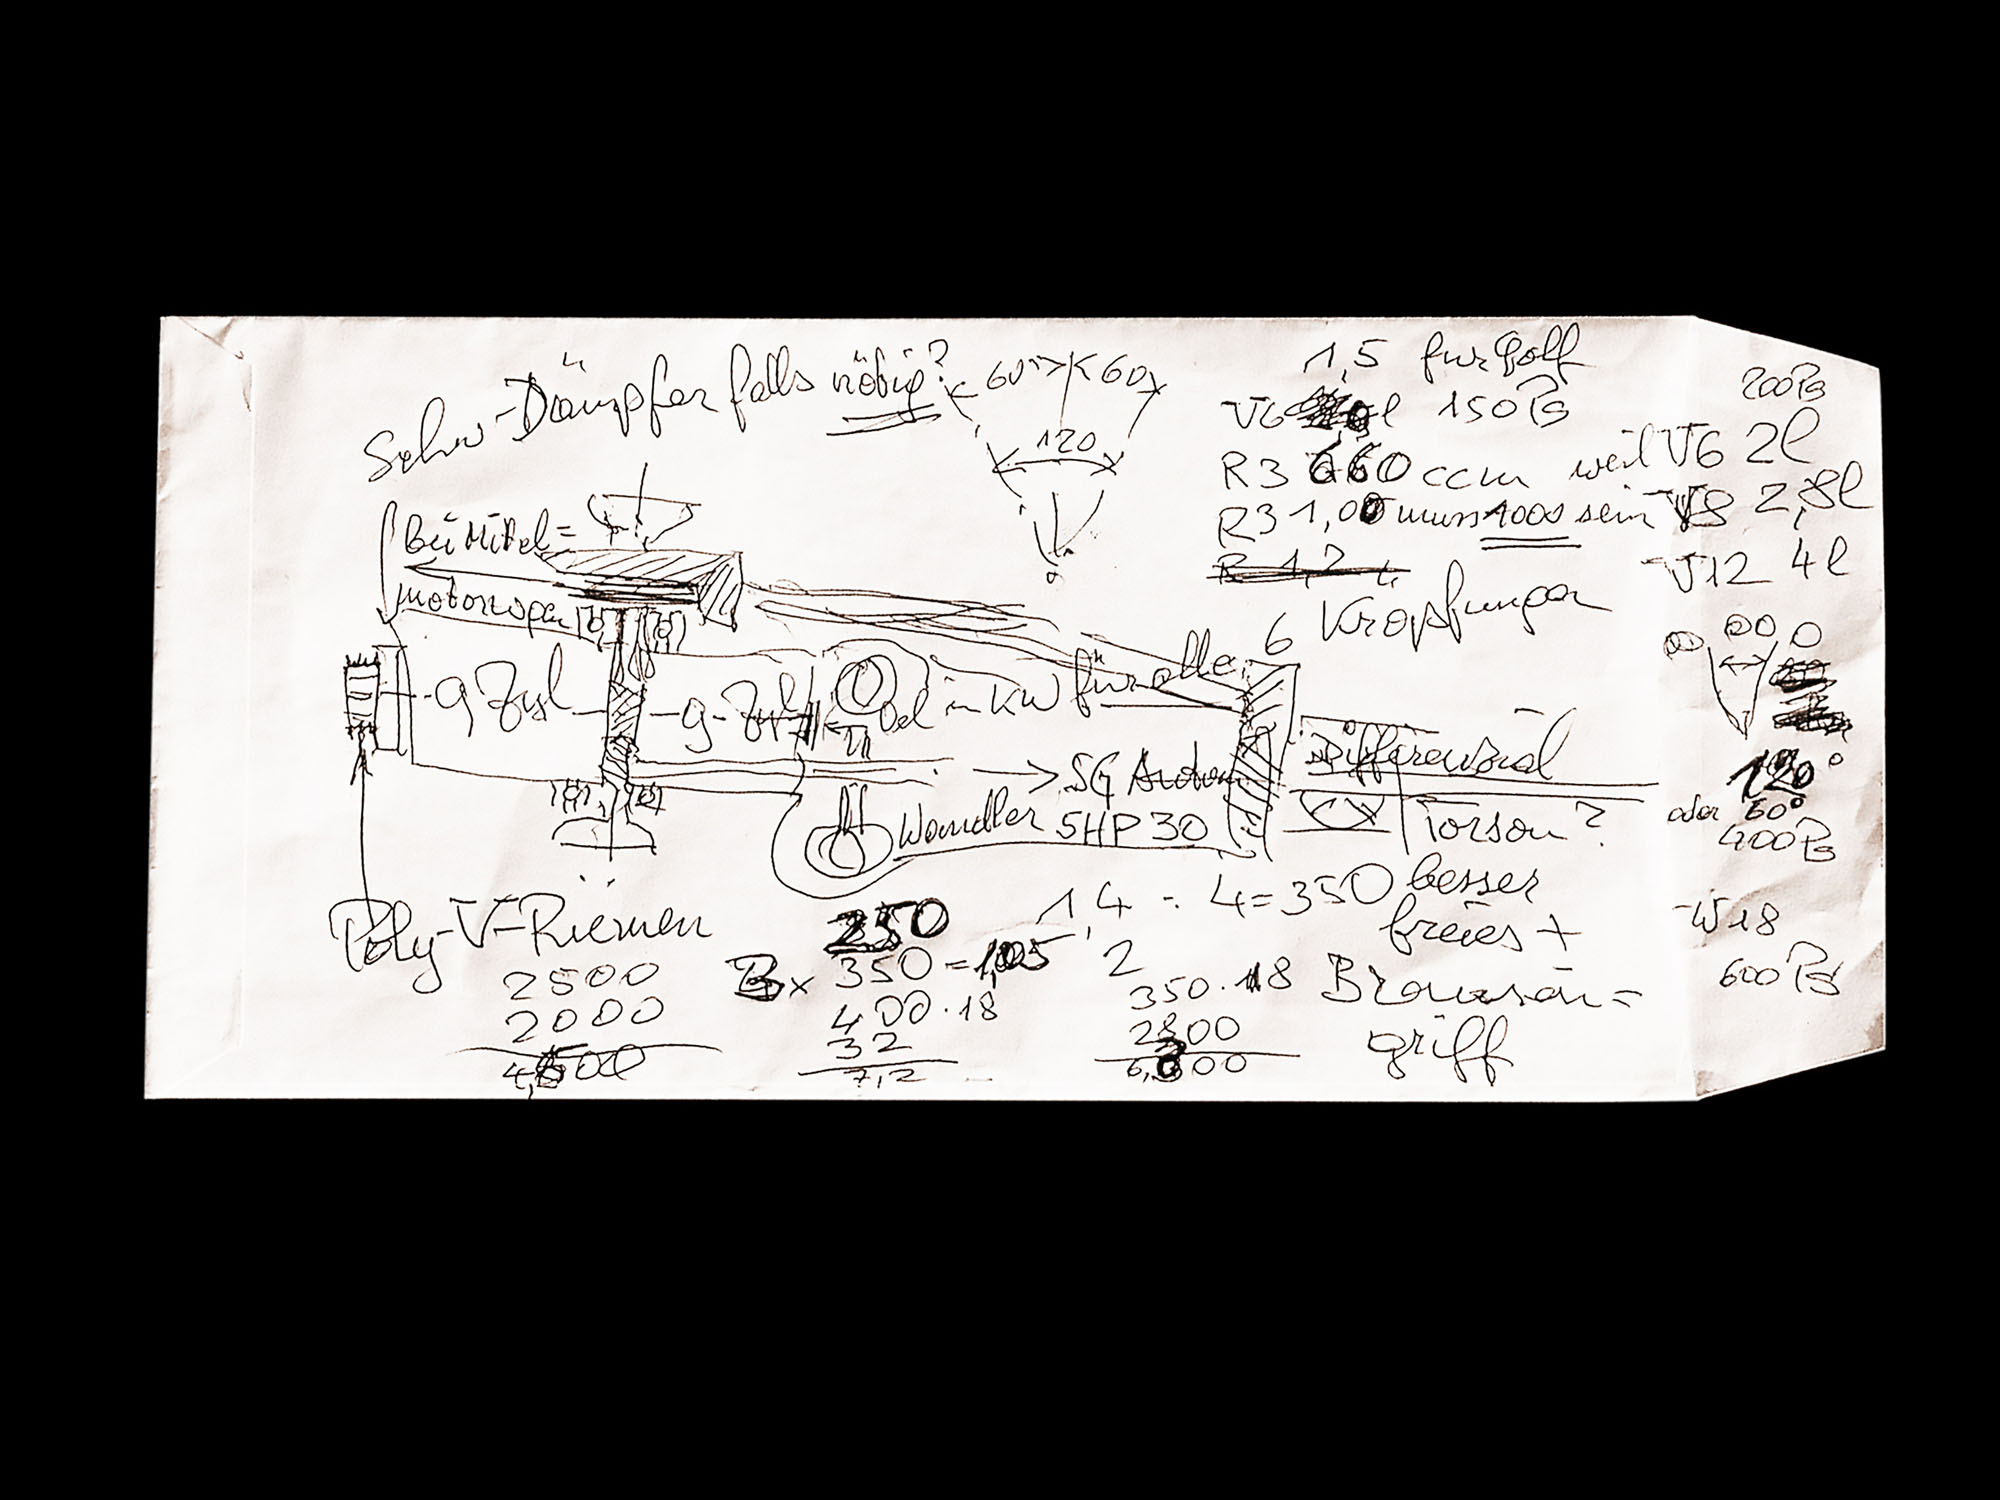 Schw-Dämpfer falls nötig?
< 60° >< 60 >
120
1,5 für Golf
V6 l 150 PS
R3 660 ccm weil
R3 1,00 muss 1000 sein
R 1,2 L
6 Kröpfungen
200 PS
V6 2l
V8 2,8l
V12 4l
120°
oder 60°
400 PS
W18
600 PS
Bei Mittel=
motorwagen
9 Zyl
9-Zyl
in KW für alle
→ 5G
Wandler 5HP30
Differenzial
Torsen?
besser
freies +
Bremsein=
griff
Poly-V-Riemen
2500
2000
4,500
250
3x 350 = 1,05
400 · 18
32
7,2
1,4 : 4 = 350
2
350 · 18
2800
6,300